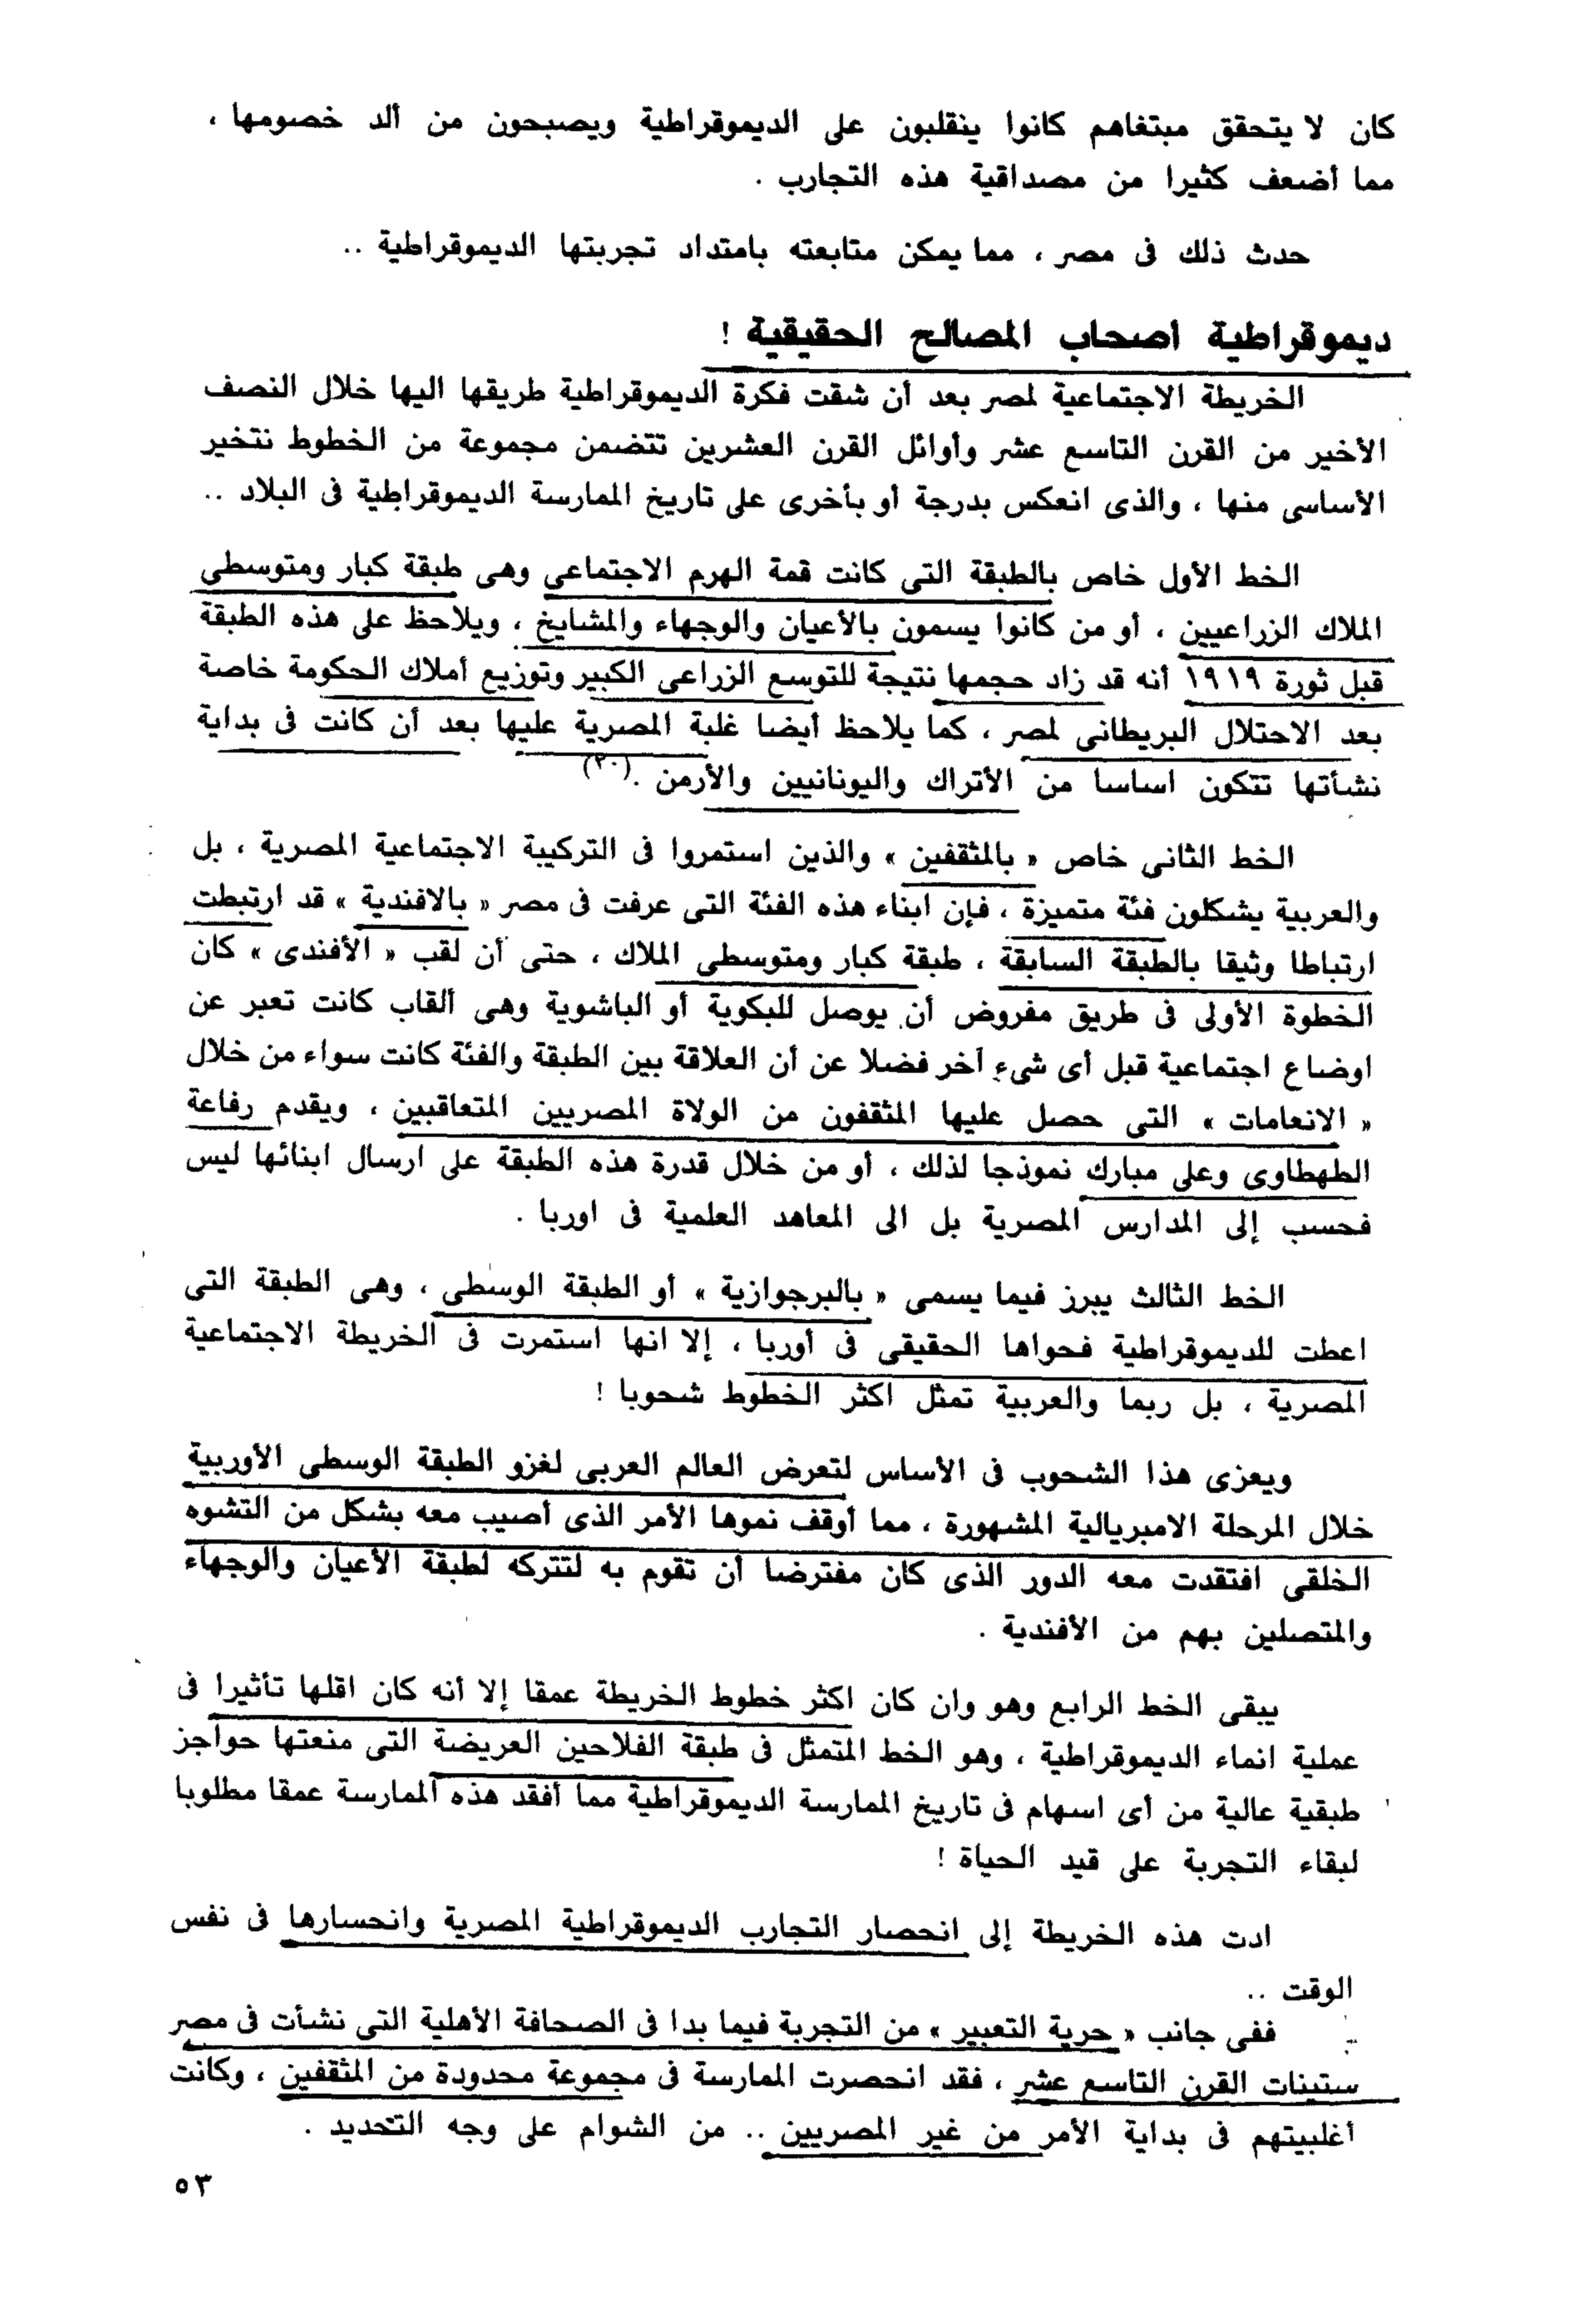 كان لا يتحقق مبتغاهم كانوا ينقلبون على الديموقراطية ويصبحون من ألد خصومها ،
مما أضعف كثيرا من مصداقية هذه التجارب .
حدث ذلك فى مصر ، مما يمكن متابعته بامتداد تجربتها الديموقراطية ..
ديموقراطية أصحاب المصالح الحقيقية !
الخريطة الاجتماعية لمصر بعد أن شقت فكرة الديموقراطية طريقها اليها خلال النصف
الأخير من القرن التاسع عشر وأوائل القرن العشرين تتضمن مجموعة من الخطوط نتخير
الأساسى منها ، والذى انعكس بدرجة أو بأخرى على تاريخ الممارسة الديموقراطية فى البلاد ..
الخط الأول خاص بالطبقة التى كانت قمة الهرم الاجتماعى وهى طبقة كبار ومتوسطى
الملاك الزراعيين ، أو من كانوا يسمون بالأعيان والوجهاء والمشايخ ، ويلاحظ على هذه الطبقة
قبل ثورة ١٩١٩ أنه قد زاد حجمها نتيجة للتوسع الزراعى الكبير وتوزيع أملاك الحكومة خاصة
بعد الاحتلال البريطانى لمصر ، كما يلاحظ أيضا غلبة المصرية عليها بعد أن كانت فى بداية
نشأتها تتكون اساسا من الأتراك واليونانيين والأرمن .(٢٠)
الخط الثانى خاص « بالمثقفين » والذين استمروا فى التركيبة الاجتماعية المصرية ، بل
والعربية يشكلون فئة متميزة ، فإن ابناء هذه الفئة التى عرفت فى مصر « بالافندية » قد ارتبطت
ارتباطا وثيقا بالطبقة السابقة ، طبقة كبار ومتوسطى الملاك ، حتى أن لقب « الأفندى » كان
الخطوة الأولى فى طريق مفروض أن يوصل للبكوية أو الباشوية وهى ألقاب كانت تعبر عن
اوضاع اجتماعية قبل أى شىء آخر فضلا عن أن العلاقة بين الطبقة والفئة كانت سواء من خلال
« الانعامات » التى حصل عليها المثقفون من الولاة المصريين المتعاقبين ، ويقدم رفاعة
الطهطاوى وعلى مبارك نموذجا لذلك ، أو من خلال قدرة هذه الطبقة على ارسال ابنائها ليس
فحسب إلى المدارس المصرية بل الى المعاهد العلمية فى اوربا .
الخط الثالث يبرز فيما يسمى « بالبرجوازية » أو الطبقة الوسطى ، وهى الطبقة التى
اعطت للديموقراطية فحواها الحقيقى فى أوربا ، إلا انها استمرت فى الخريطة الاجتماعية
المصرية ، بل ربما والعربية تمثل اكثر الخطوط شحوبا !
ويعزى هذا الشحوب فى الأساس لتعرض العالم العربى لغزو الطبقة الوسطى الأوربية
خلال المرحلة الامبريالية المشهورة ، مما أوقف نموها الأمر الذى أصيب معه بشكل من التشوه
الخلقى افتقدت معه الدور الذى كان مفترضا أن تقوم به لتتركه لطبقة الأعيان والوجهاء
والمتصلين بهم من الأفندية .
يبقى الخط الرابع وهو وان كان اكثر خطوط الخريطة عمقا إلا أنه كان اقلها تأثيرا فى
عملية انماء الديموقراطية ، وهو الخط المتمثل فى طبقة الفلاحين العريضة التى منعتها حواجز
طبقية عالية من أى اسهام فى تاريخ الممارسة الديموقراطية مما أفقد هذه الممارسة عمقا مطلوبا
لبقاء التجربة على قيد الحياة !
ادت هذه الخريطة إلى انحصار التجارب الديموقراطية المصرية وانحسارها فى نفس
الوقت ..
ففى جانب « حرية التعبير » من التجربة فيما بدا فى الصحافة الأهلية التى نشأت فى مصر
ستينات القرن التاسع عشر ، فقد انحصرت الممارسة فى مجموعة محدودة من المثقفين ، وكانت
أغلبيتهم فى بداية الأمر من غير المصريين .. من الشوام على وجه التحديد .
٥٣